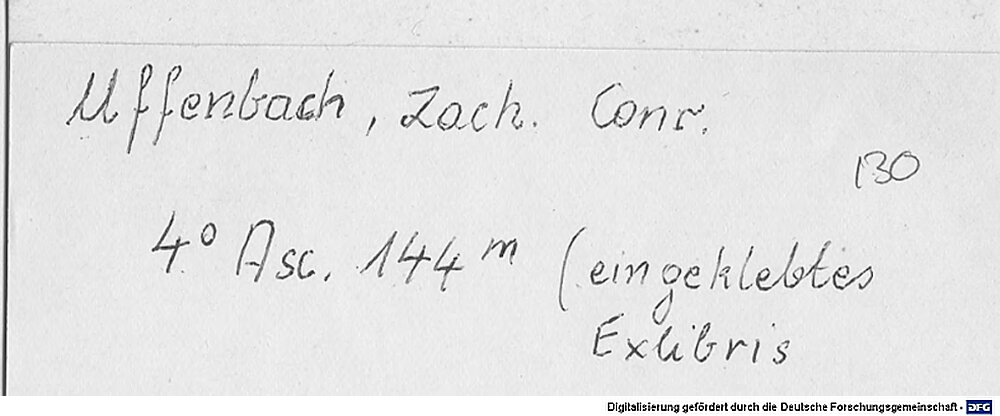 Uffenbach, Zach. Conr.
130
4° Asc. 144 m (eingeklebtes
Exlibris
Digitalisierung gefördert durch die Deutsche Forschungsgemeinschaft - DFG